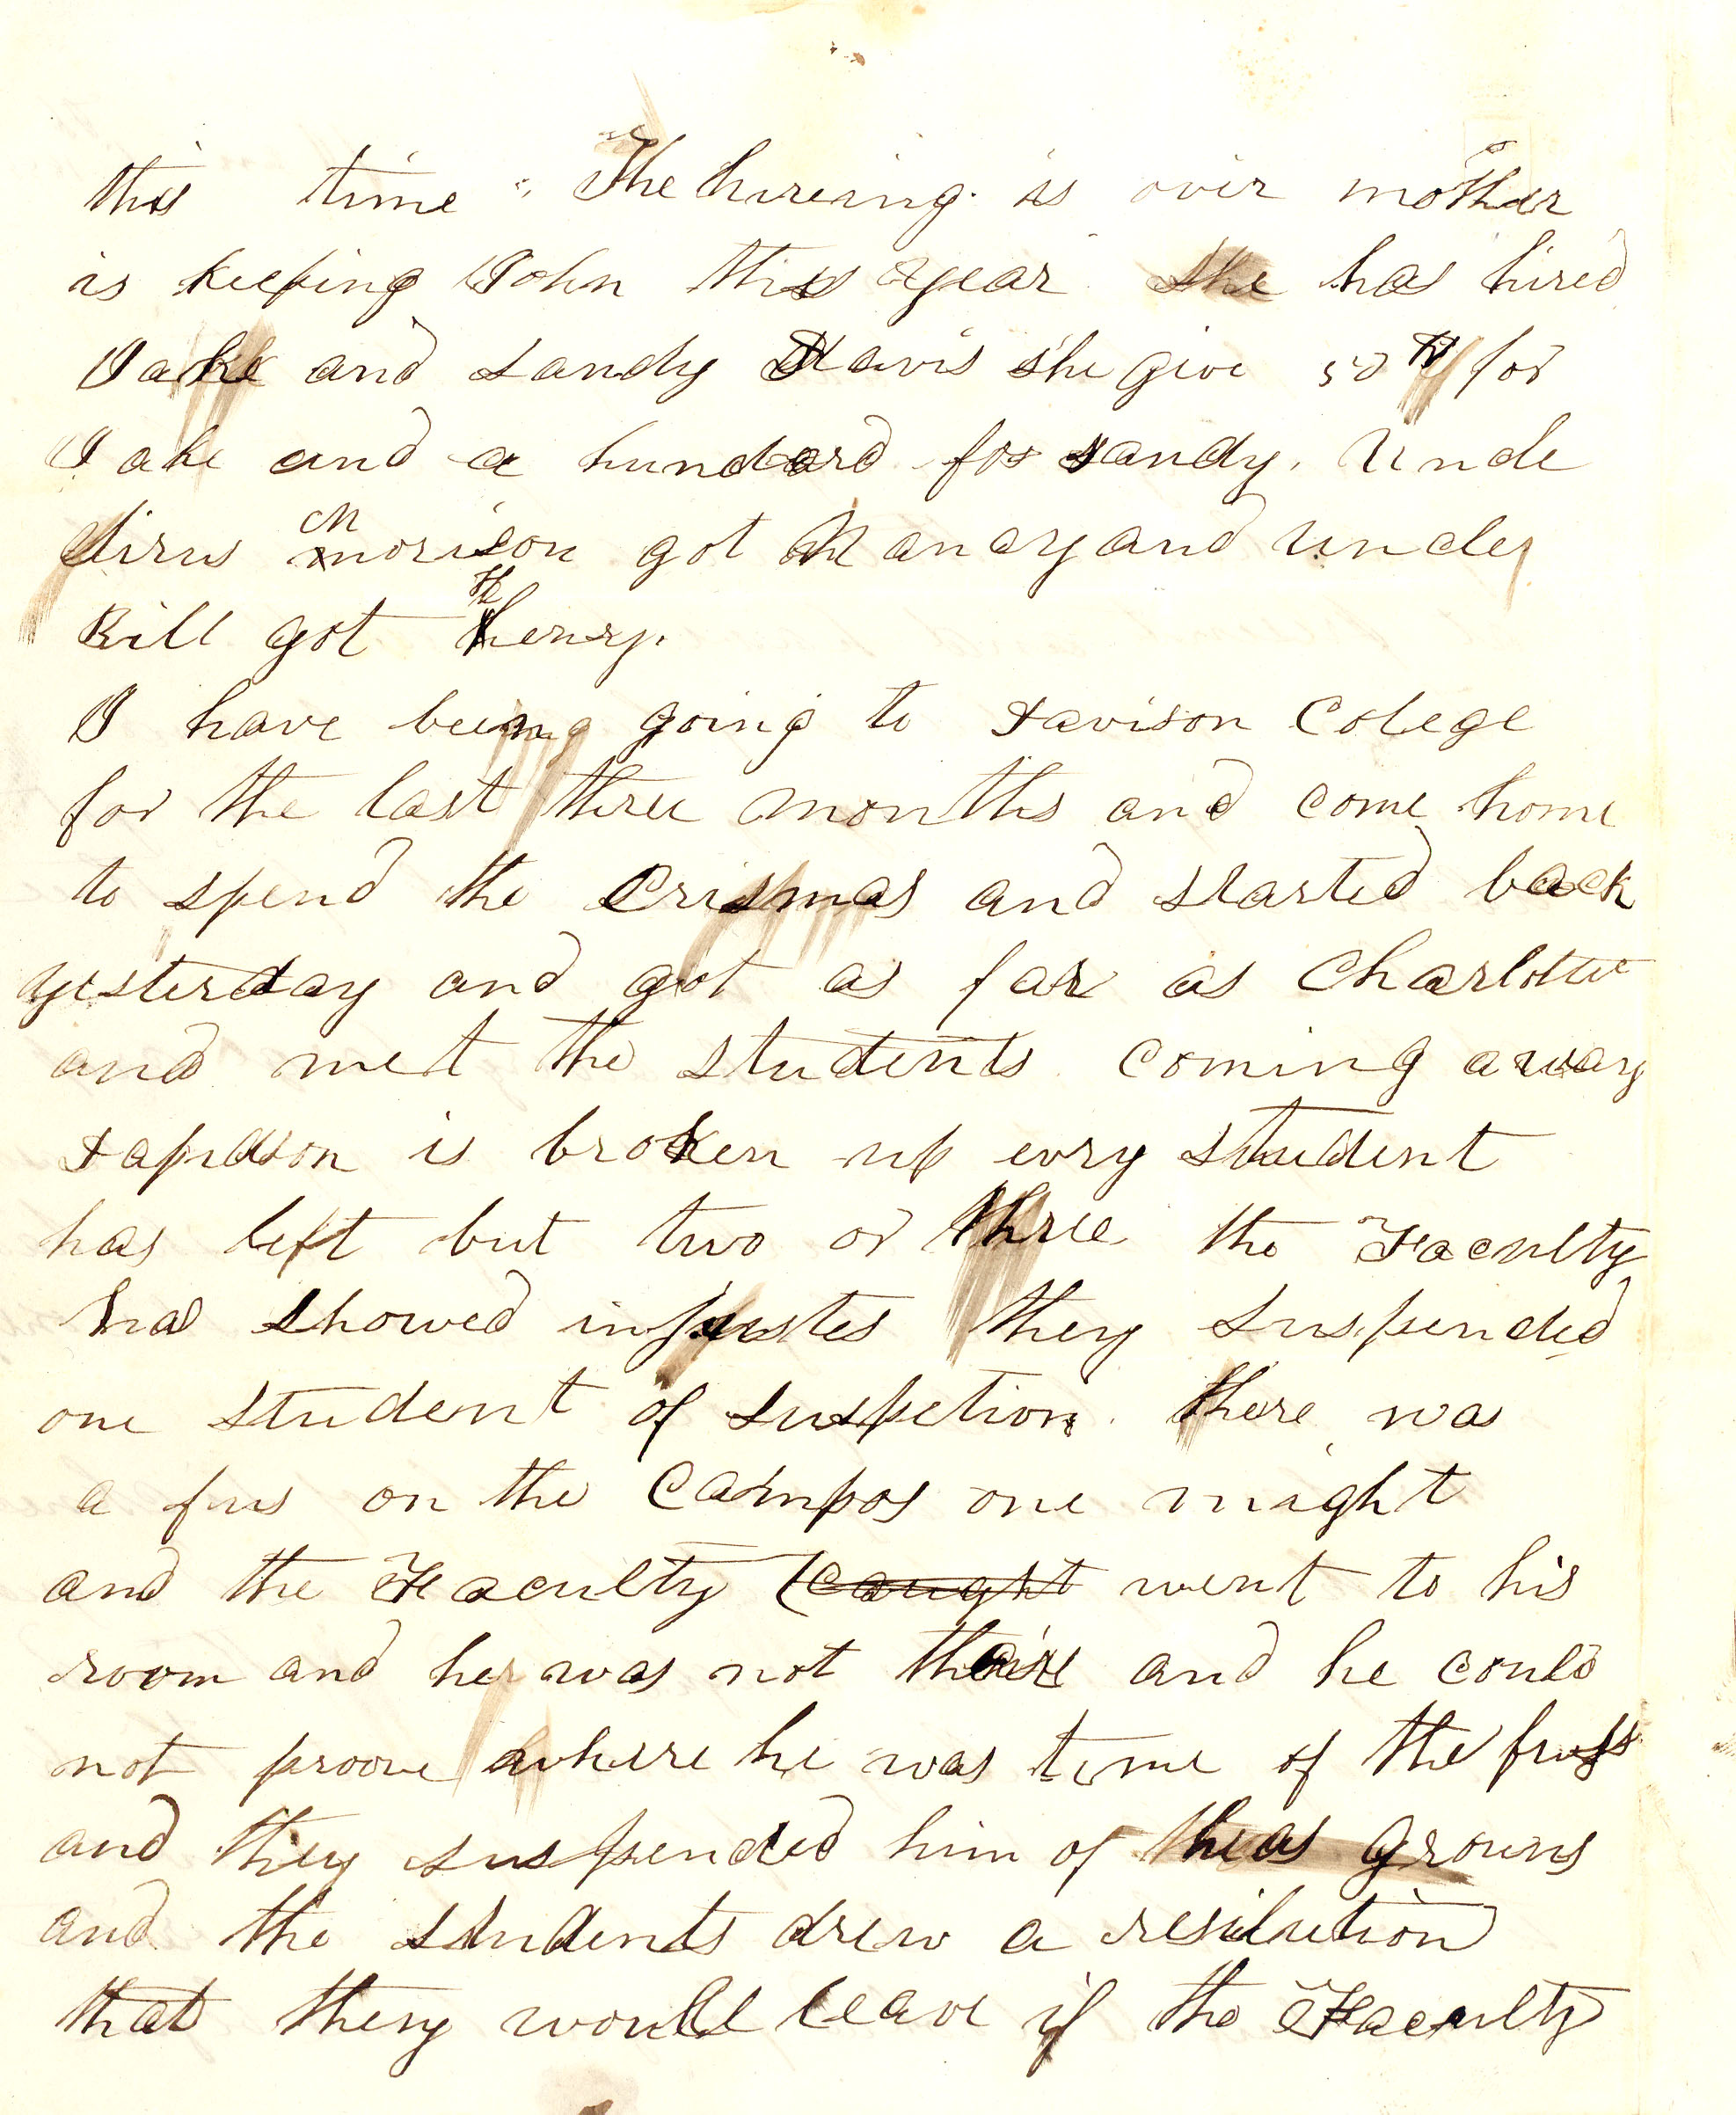 this time. The hireing is over mother
is keeping John this year she has hired
Jake and Sandy Davis she give 50 for
Jake and a hunderd for sandy. Uncle
Sirus Morison got Nancy and Uncle
Bill got Henry.
I have being going to Davison Colege
for the last three months and come home
to spend the Crismas and started back
yesterday and got as far as Charlotte
and met the students coming away
is broken up evry student
has left but two or three the Faculty
has showed injustes they suspended
one student of suspetion there was
a fus on the Campos one night
and the Faculty caught went to his
room and he was not thair and he could
not proove where he was time of the fuss
and they suspended him of theas grouns
and the students drew a resilution
that they would leave if the Faculty